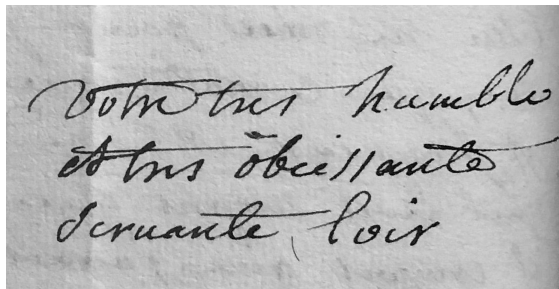 votre tres humble
et tres obeissante
servante loir